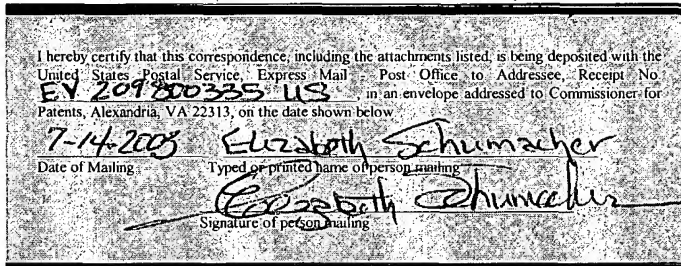 I hereby certify that this correspondence, including the attachments listed, is being deposited with the
United States Postal Service, Express Mail Post Office to Addressee, Receipt No.
EV 209800335 US in an envelope addressed to Commissioner for
Patents, Alexandria, VA 22313, on the date shown below.
7-14-2003 Elizabeth Schumacher
Date of Mailing Typed or printed name of person mailing
Elizabeth Schumacher
Signature of person mailing